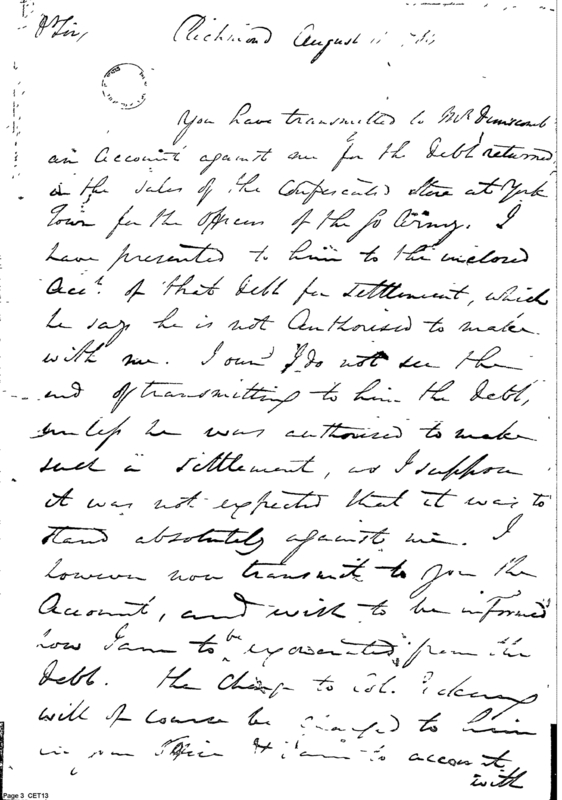 Dr Sir,
Richmond August 11
You have transmitted to Mr Dunscomb
an Account against me for the Debt returned
in the sales of the confiscated store at York
Town for the officers of the Army. I
have presented to him the inclosed
Acct. of that Debt for settlement, which
he says he is not Authorised to make
with me. I own I do not see the
end of transmitting to him the Debt,
unless he was authorised to make
such a settlement, as I suppose
it was not expected that it was to
stand absolutely against me. I
however now transmit to you the
Account, and wish to be informed
how I am to be exonerated from the
Debt. The Charge to Col.
will of course be charged to him
in your office & I am to account
with
Page 3 CET13